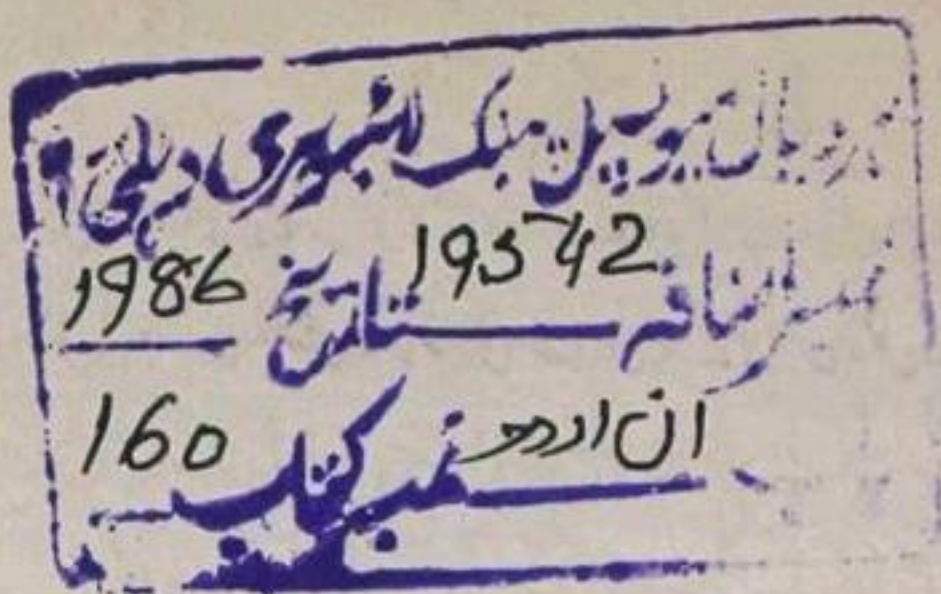 ہردیال میونسپل پبلک لائبریری دہلی
نمبر اضافہ 19542 تاریخ 1986
آن اردو نمبر کتاب 160